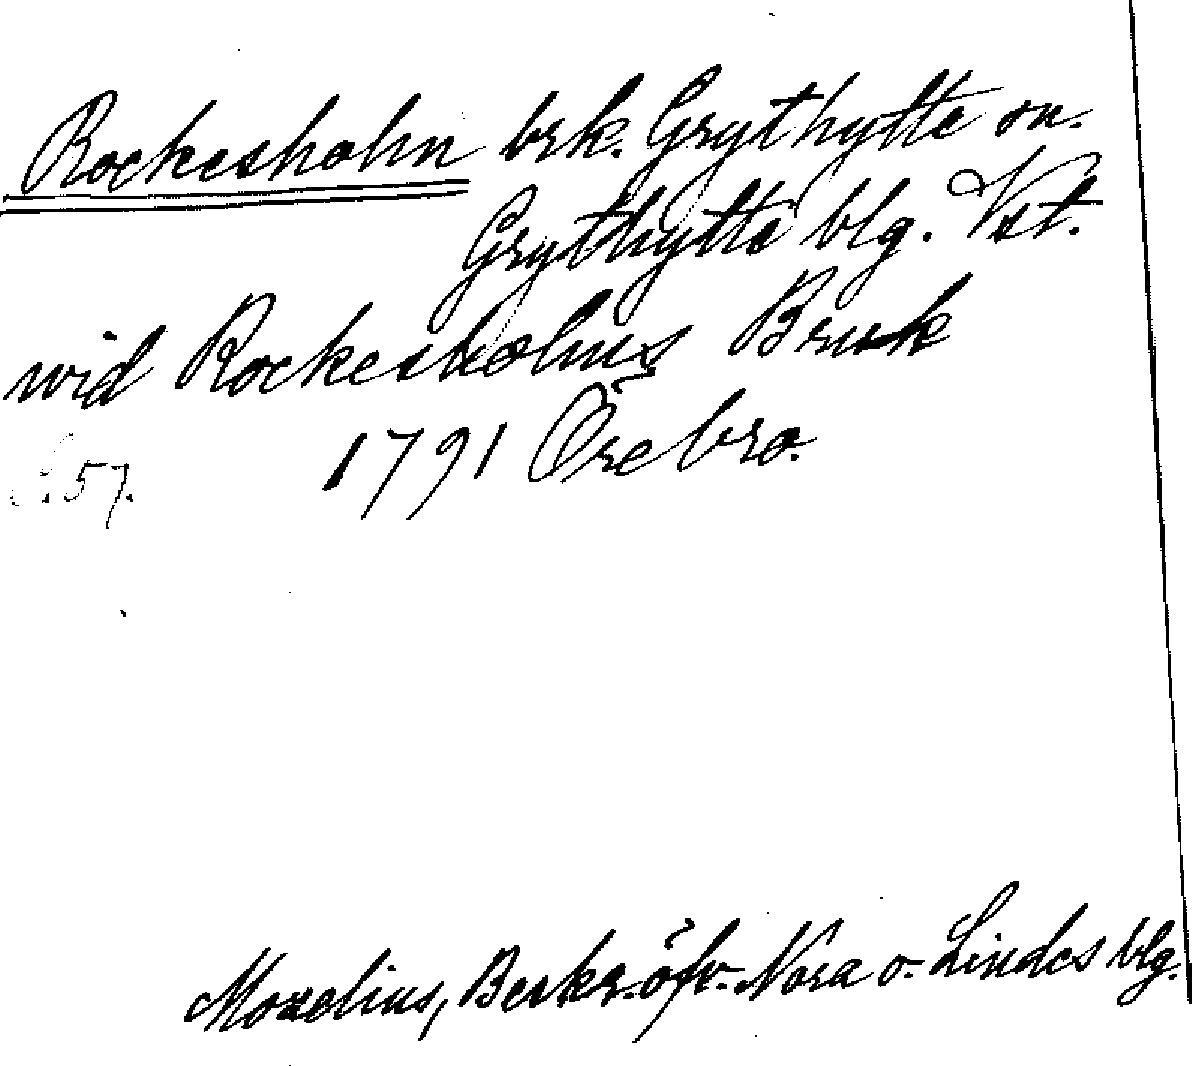 Rockesholm brk. Grythytte sn.
Grythytte blg. Vst.
wid Rockesholms Bruk
1791 Örebro.
57.
Moxelius, Beskr. öfv. Nora o. Lindes blg.